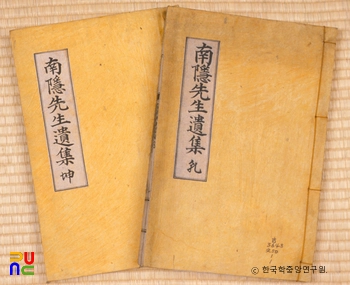 南隱先生遺集 坤
南隱先生遺集 乹
RUNC
© 한국학중앙연구원